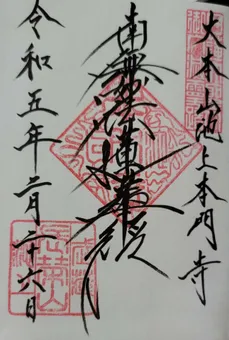 大本山池上本門寺
南無妙法蓮華経
令和五年二月二十六日
長栄山